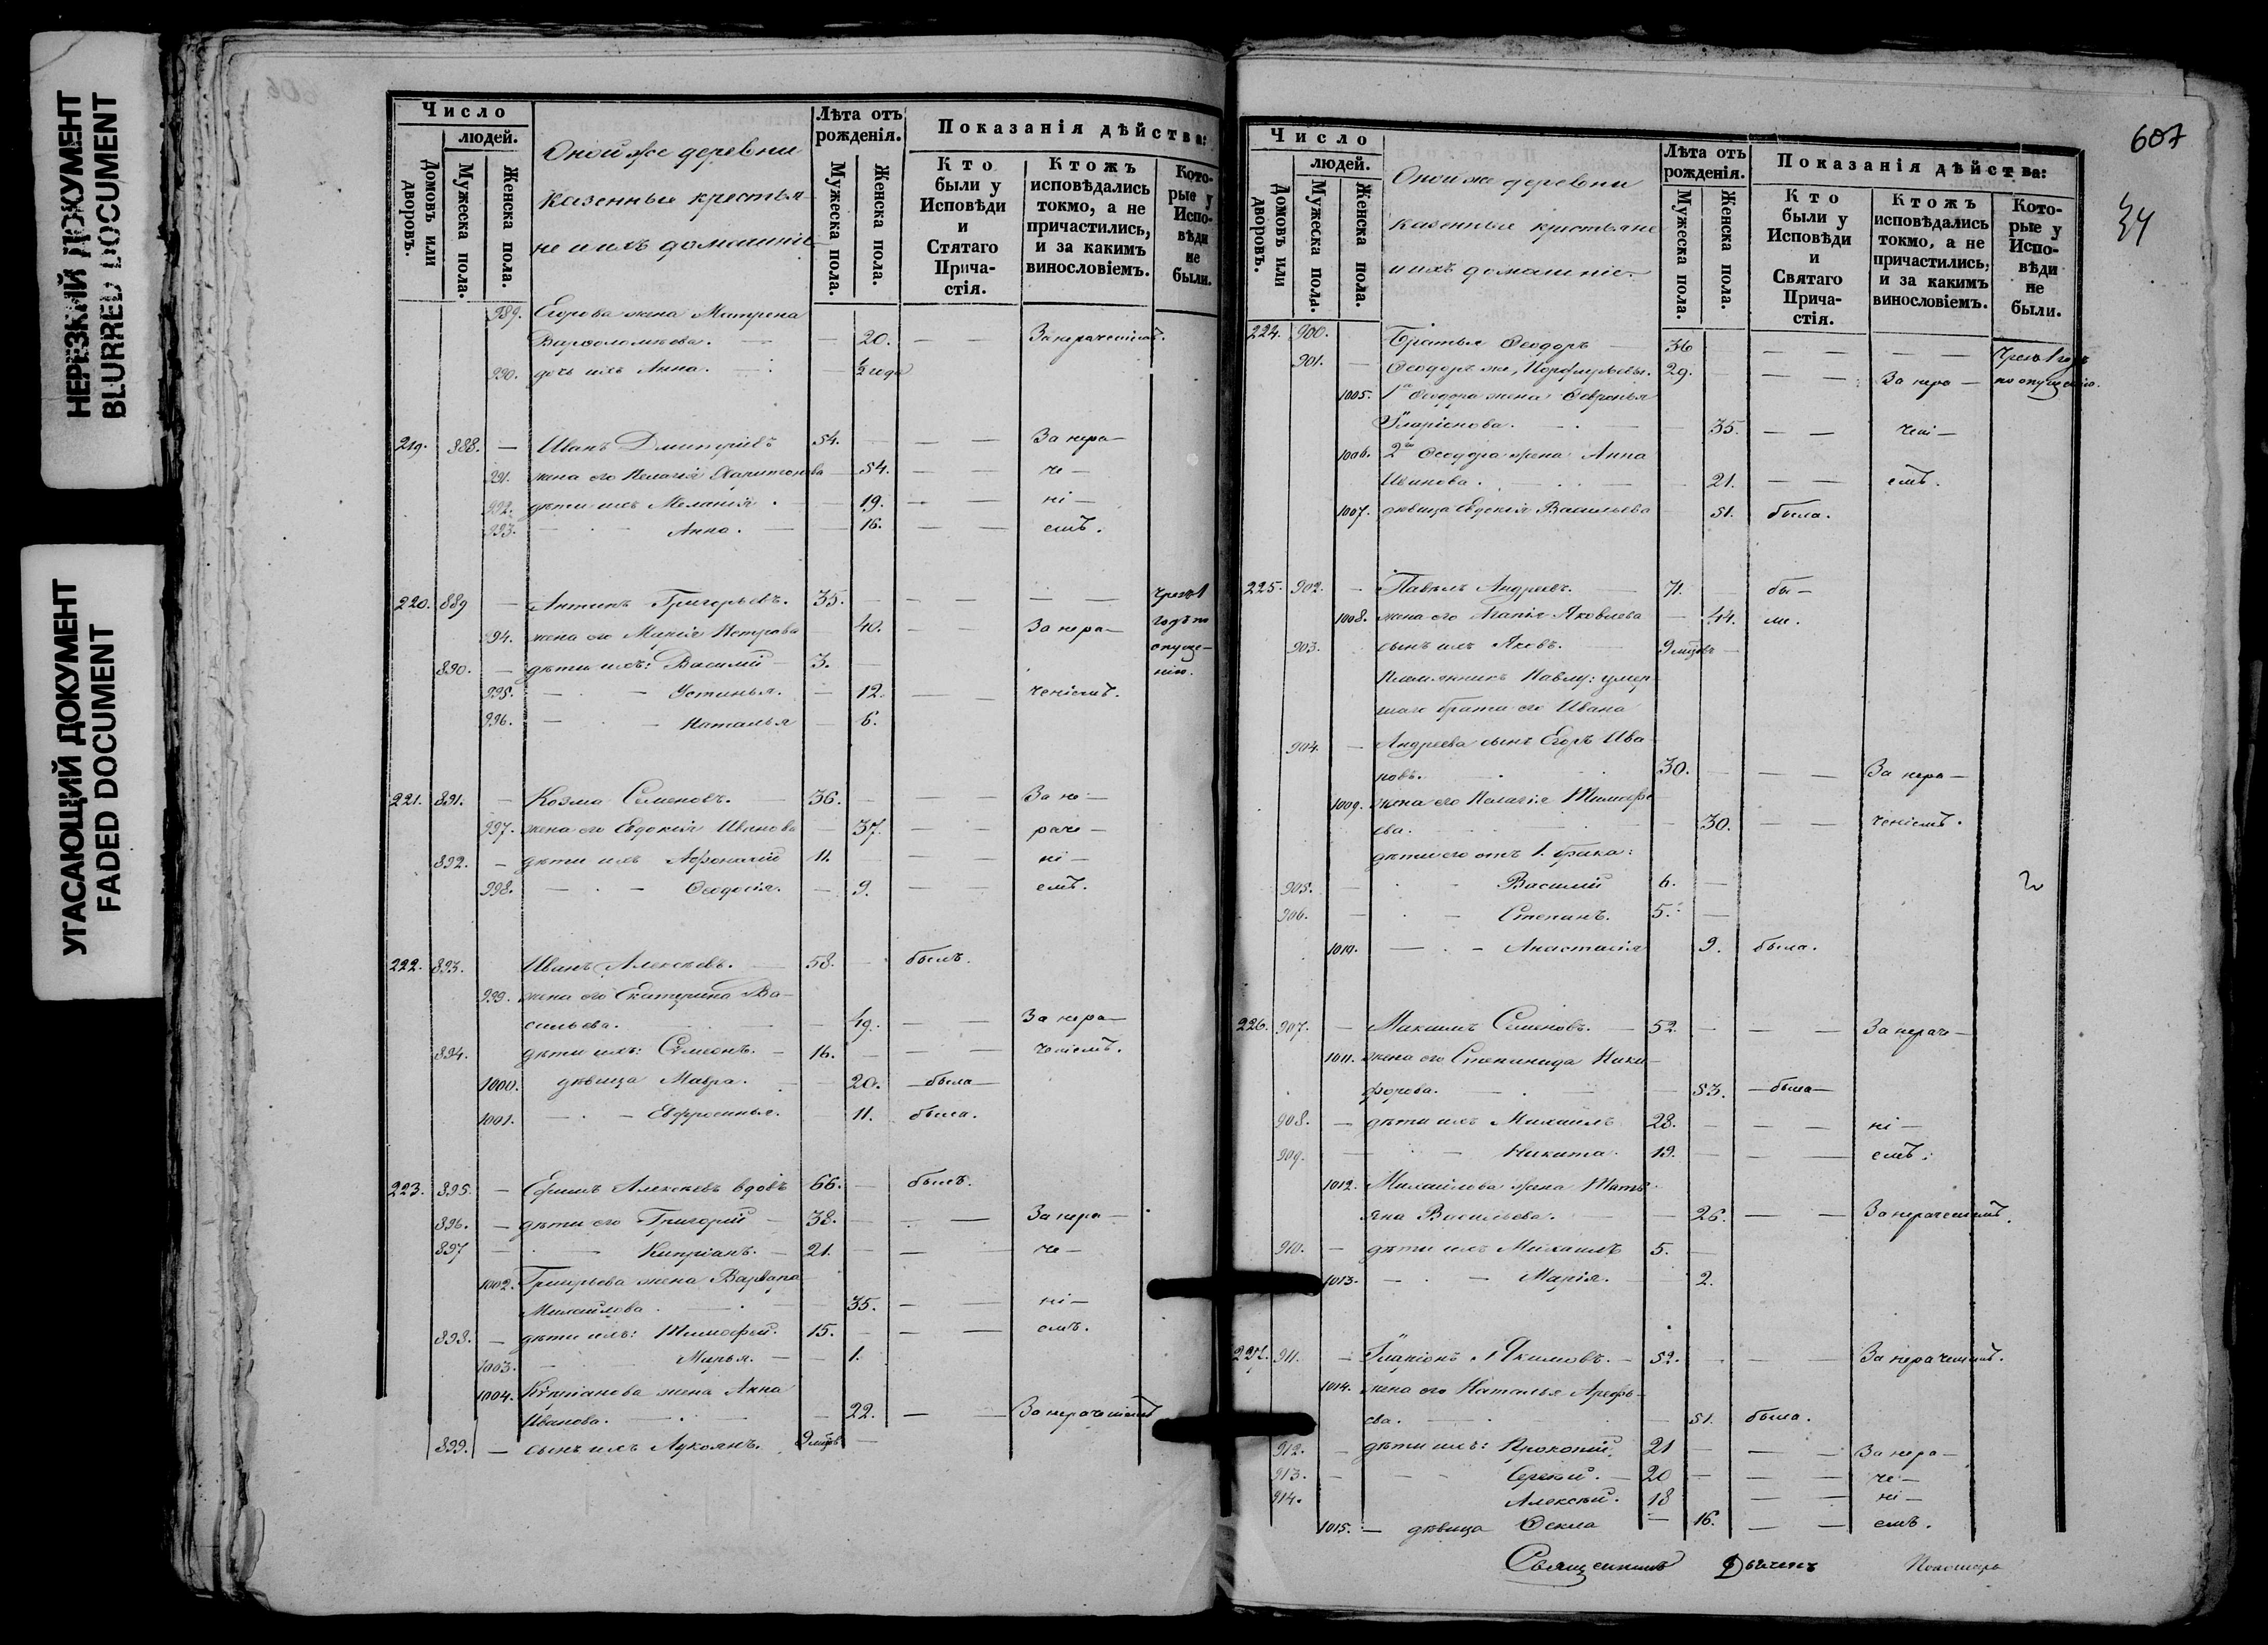 НЕРЕЗКИЙ ДОКУМЕНТ
BLURRED DOCUMENT
УГАСАЮЩИЙ ДОКУМЕНТ
FADED DOCUMENT
Число
людей.
Домовъ или дворовъ.
Мужеска пола.
Женска пола.
Оной же деревни
казенные крестья-
не и ихъ домашніе
Лѣта отъ рожденія.
Мужеска пола.
Женска пола.
Показанія дѣйства:
Кто были у Исповѣди и Стятаго Прича-стія.
Ктожъ исповѣдались токмо, а не причастились, и за какимъ винословіемъ.
Кото-рые у Испо-вѣди не были.
989. Егорова жена Матрена
Варѳоломѣева. — 20. — — За нераченіемъ.
990. дочь ихъ Анна. ½ года
219. 888. — Иванъ Дмитріевъ 54. — — За нера—
991. жена его Пелагія Харитонова — 54. — — че—
992. дѣти ихъ Меланія. — 19. — — ні—
993. — Анна. — 16. — — емъ.
220. 889 — Антипъ Григорьевъ. 35. — — — — Чрезъ 1
994. жена его Марія Петрова — 40. — — За нера— годъ по
890. — дѣти ихъ: Василій — 3. — опуще-
нію.
995. — — Устинья. — 12. — — ченіемъ.
996. — — Наталья — 6.
221. 891. — Козма Семеновъ. — 36. — — За не—
997. жена его Евдокія Иванова — 37. — — раче—
892. — дѣти ихъ Аѳонасій 11. — — ні—
998. — — Ѳеодосія. — 9. — — емъ.
222. 893. Иванъ Алексѣевъ. — 58. — былъ.
999. жена его Екатерина Ва-
сильева. — 49. — — За нера—
894. дѣти ихъ: Сѷмеонъ. — 16. — — ченіемъ.
1000. дѣвица Мавра. — 20. —была—
1001. — — Евфросинья. — 11. была.
223. 895. — Ефимъ Алексѣевъ вдовъ 66. — былъ.
896. — дѣти его Григорій — 38. — — За нера—
897 — — Кипріанъ. — 21. — — че—
1002. Григорьева жена Варвара
Михайлова. — 35. — — ні—
898. — дѣти ихъ: Тимоѳей. 15. — — емъ.
1003. — Марья. — 1.
1004. Кѷпріанова жена Анна
Иванова. — 22. — — За нераченіемъ
899. — сынъ ихъ Лукоянъ. 9 мцовъ —
607
34
Число
людей.
Домовъ или дворовъ.
Мужеска пола.
Женска пола.
Оной же деревни
казенные крестьяне
и ихъ домашніе.
Лѣта отъ рожденія.
Мужеска пола.
Женска пола.
Показанія дѣйства:
Кто были у Исповѣди и Святаго Прича-стія.
Ктожъ исповѣдались токмо, а не причастились, и за какимъ винословіемъ.
Кото-рые у Испо-вѣди не были.
224. 900. Братья Ѳеодоръ — 36 — — — — Чрезъ 1 годъ
901. — Ѳеодоръ же, Порфирьевы. 29. — — За нера— по опущенію.
1005. 1го Ѳеодора жена Ѳевронья
Иларіонова. — 35. — — чені—
1006. 2го Ѳеодора жена Анна
Иванова. — 21. — — емъ.
1007. дѣвица Евдокія Васильева 51. была.
225. 902. — Павелъ Андреевъ. — 71. — бы—
1008. жена его Агапія Яковлева — 44. ли.
903. сынъ ихъ Яковъ. — 9 мцовъ —
племянникъ Павлу: умер-
шаго брата его Ивана
904. — Андреева сынъ Егоръ Ива-
новъ. 30. — — За нера—
1009. жена его Пелагія Тимоѳе-
ева. — 30. — — ченіемъ.
дѣти его отъ 1. брака:
905. — — Василій 6. —
906. — — Степанъ. 5. —
1010. — — Анастасія 9. была.
226. 907. — Максимъ Семеновъ. — 52. — — За нерач—
1011. жена его Степанида Ники-
форова. — 53. —была—
908. — дѣти ихъ Михаилъ 28. — — ні—
909. — — Никита. 19. — — емъ.
1012. Михайлова жена Татья-
яна Васильева. — 26. — — За нераченіемъ.
910. — дѣти ихъ Михаилъ 5. —
1013. — — Марія. — 2.
227. 911. — Иларіонъ Якимовъ. — 52. — — За нераченіемъ.
1014. жена его Наталья Арефь-
ева. — 51. была.
912. — дѣти ихъ: Прокопій 21 — — За нера—
913. — — Сергѣй. — 20 — — че—
914. Алексѣй. 18 — — ні—
1015. — дѣвица Ѳекла — 16. — — емъ.
Священникъ
Пономарь